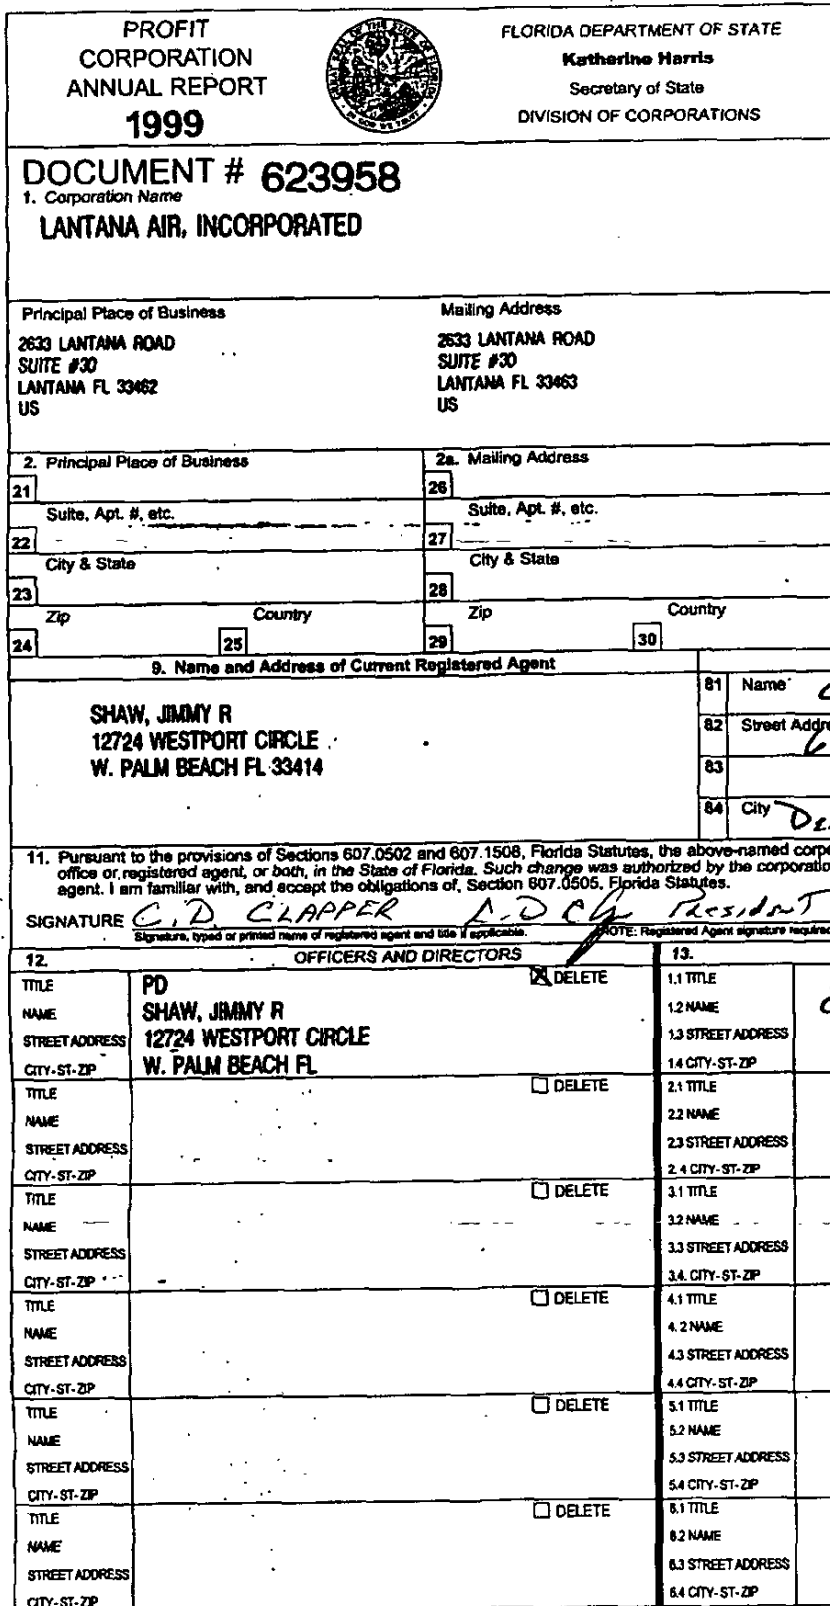 PROFIT
CORPORATION
ANNUAL REPORT
1999
FLORIDA DEPARTMENT OF STATE
Katherine Harris
Secretary of State
DIVISION OF CORPORATIONS
DOCUMENT # 623958
1. Corporation Name
LANTANA AIR, INCORPORATED
Principal Place of Business
2633 LANTANA ROAD
SUITE #30
LANTANA FL 33462
US
Mailing Address
2633 LANTANA ROAD
SUITE #30
LANTANA FL 33463
US
2. Principal Place of Business
2a. Mailing Address
21
26
Suite, Apt. #, etc.
Suite, Apt. #, etc.
22
27
City & State
City & State
23
28
Zip Country
Zip Country
24 25
29 30
9. Name and Address of Current Registered Agent
SHAW, JIMMY R
12724 WESTPORT CIRCLE
W. PALM BEACH FL 33414
81 Name
82 Street Addre
83
84 City De
11. Pursuant to the provisions of Sections 607.0502 and 607.1508, Florida Statutes, the above-named corpo
office or registered agent, or both, in the State of Florida. Such change was authorized by the corporatio
agent. I am familiar with, and accept the obligations of, Section 607.0505, Florida Statutes.
SIGNATURE C. D. CLAPPER President
Signature, typed or printed name of registered agent and title if applicable. NOTE: Registered Agent signature required
12. OFFICERS AND DIRECTORS
13.
TITLE PD DELETE
NAME SHAW, JIMMY R
STREET ADDRESS 12724 WESTPORT CIRCLE
CITY-ST-ZIP W. PALM BEACH FL
1.1 TITLE
1.2 NAME
1.3 STREET ADDRESS
1.4 CITY-ST-ZIP
TITLE DELETE
NAME
STREET ADDRESS
CITY-ST-ZIP
2.1 TITLE
2.2 NAME
2.3 STREET ADDRESS
2.4 CITY-ST-ZIP
TITLE DELETE
NAME
STREET ADDRESS
CITY-ST-ZIP
3.1 TITLE
3.2 NAME
3.3 STREET ADDRESS
3.4. CITY-ST-ZIP
TITLE DELETE
NAME
STREET ADDRESS
CITY-ST-ZIP
4.1 TITLE
4.2 NAME
4.3 STREET ADDRESS
4.4 CITY-ST-ZIP
TITLE DELETE
NAME
STREET ADDRESS
CITY-ST-ZIP
5.1 TITLE
5.2 NAME
5.3 STREET ADDRESS
5.4 CITY-ST-ZIP
TITLE DELETE
NAME
STREET ADDRESS
CITY-ST-ZIP
6.1 TITLE
6.2 NAME
6.3 STREET ADDRESS
6.4 CITY-ST-ZIP